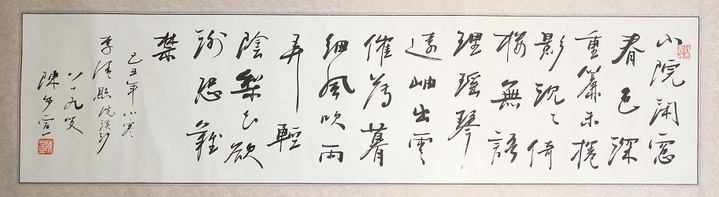 小院闲窗
春色深
重簾未捲
影沉々倚
楼無語
理瑶琴
遠岫出雲
催薄暮
細風吹雨
弄輕
陰梨花欲
謝恐難
禁
己丑年小寒
李清照浣溪沙
八十九叟
陳